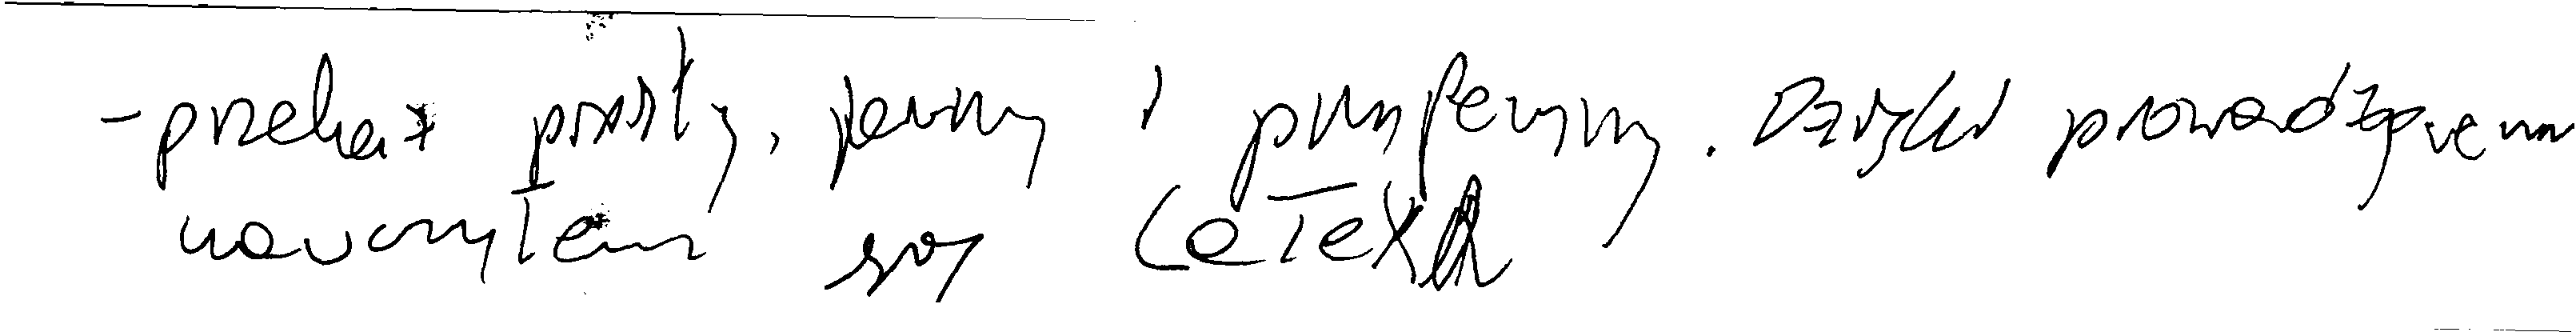 - przekaz prosty, jasny i przyjemny. Dzięki prowadzącemu
nauczyłem się LaTeXa